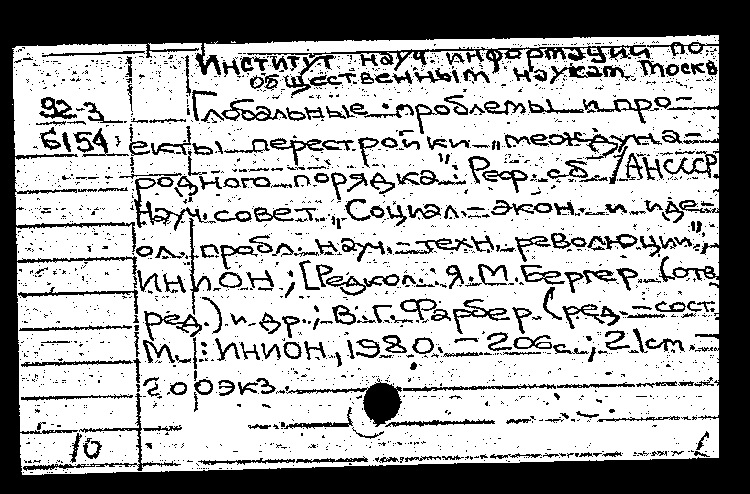 Институт науч. информации по
общественным наукам. Москв
92-3
Глобальные проблемы и про-
6154
екты перестройки „междуна-
родного порядка": Реф. сб. /АНСССР.
Науч. совет „Социал.-экон. и иде-
ол. пробл. науч.-техн. революции",
ИНИОН; [Редкол.: Я.М.Бергер (отв.
ред.) и др.; В.Г.Фарбер (ред.-сост.
М.: ИНИОН, 1980. - 206с.; 21см. -
200экз.
10